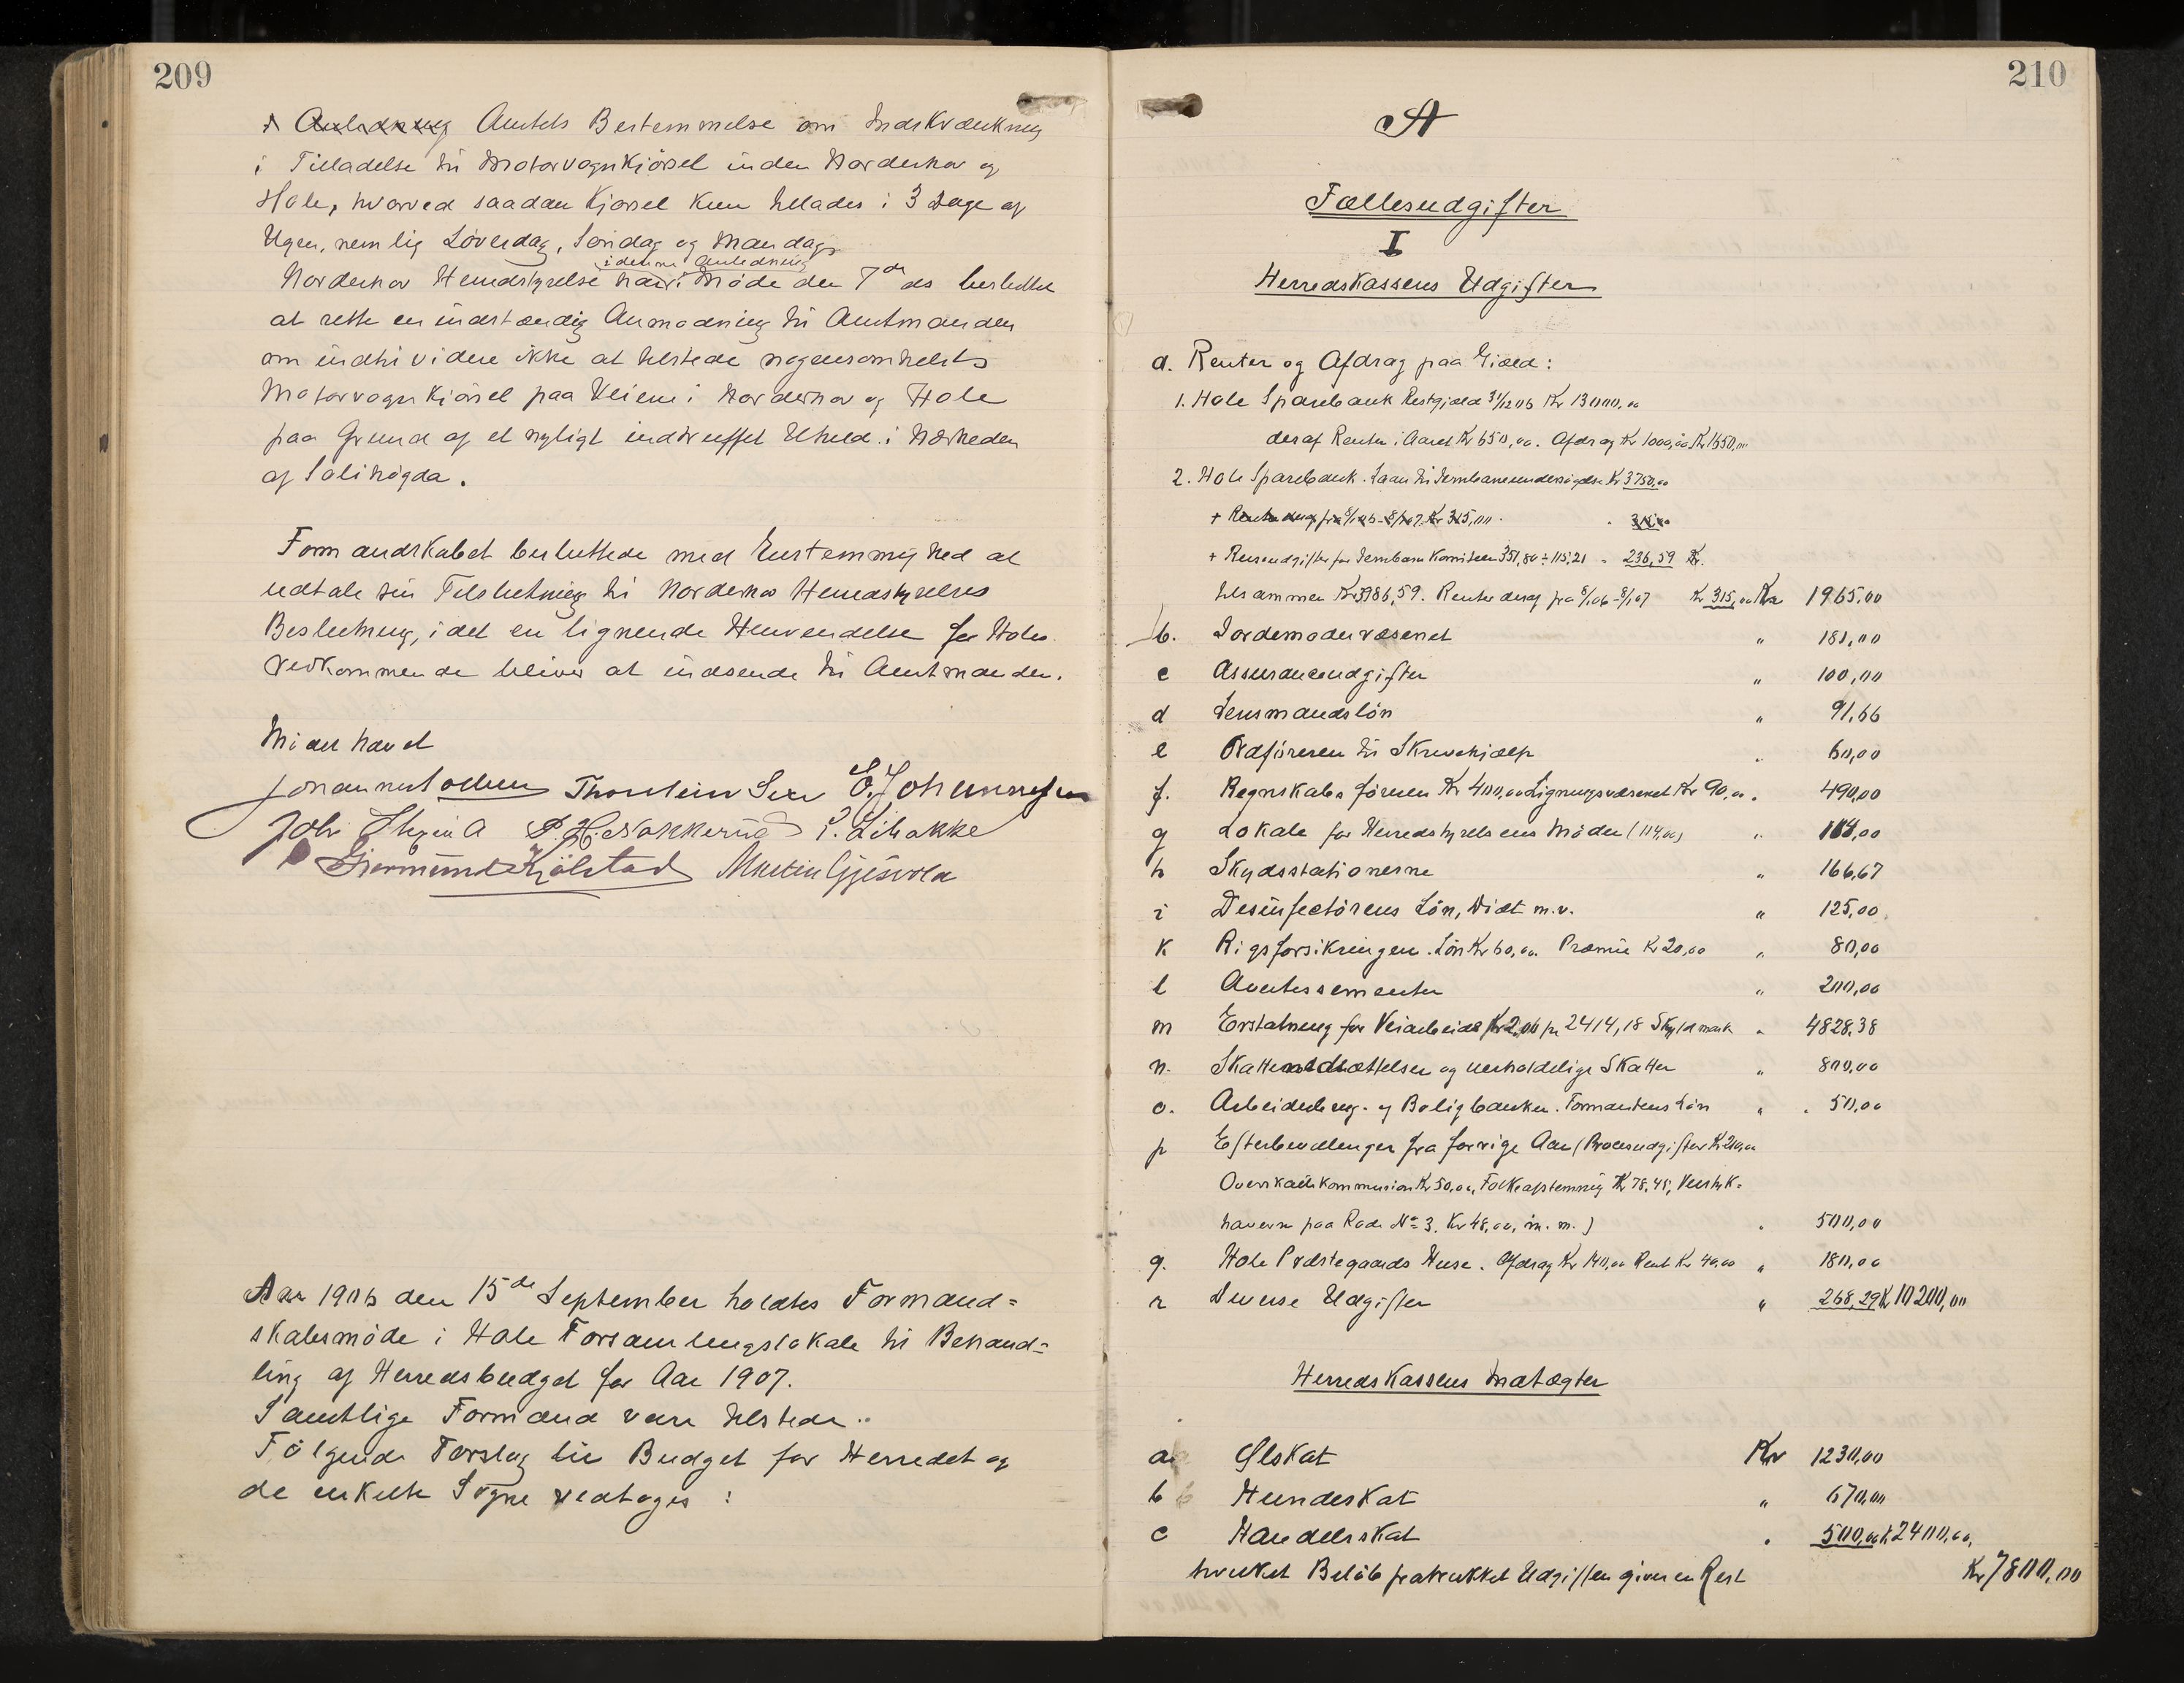 209
Amtets Bestemmelse om Indskrænkning
i Tilladelse til Motorvognkjørsel inden Norderhov og
Hole, hvorved saadan Kjørsel kun tillades i 3 Dage af
Ugen, nemlig Løverdag, Søndag og Mandag.
i denne Anledning
Norderhov Herredstyrelse har i Møde den 7de ds besluttet
at rette en indstændig Anmodning til Amtmanden
om indtil videre ikke at tilstede nogensomhelst
Motorvognkjørsel paa Veiene i Norderhov og Hole
paa Grund af et nyligt indtruffet Uheld i Nærheden
af Solihøgda.
Formandskabet besluttede med Enstemmighed at
udtale sin Tilslutning til Norderhov Herredstyrelses
Beslutning, idet en lignende Henvendelse for Holes
Vedkommende bliver at indsende til Amtmanden.
Møder hævet
Thorstein Sex E. Johannessen
P. H. Nakkerud P. Lihakke
Gjermund Kjølstad Martin Gjesvold
Aar 1906 den 15de September holdtes Formand=
skabsmøde i Hole Forsamlingslokale til Behand=
ling af Herredsbudget for Aar 1907.
Samtlige Formænd vare tilstede.
Følgende Forslag til Budget for Herredet og
de enkelte Sogne vedtoges:
210
A
Fællesudgifter
I
Herredskassens Udgifter
a. Renter og Afdrag paa Gjæld:
1. Hole Sparebank Restgjæld 31/12 06 Kr 13000,00
deraf Renter i Aaret Kr 650,00. Afdrag Kr 1000,00 Kr 1650,00
2. Hole Sparebank. Laan til Jernbaneundersøgelse Kr 3750,00
+ Renter deraf fra 8/1 06 - 8/1 07. Kr 315,00
+ Reiseudgifter for Jernbane Komiteen 351,80 ÷ 115,21 " 236,59 Kr.
tilsammen Kr 3986,59. Renter deraf fra 8/1 06 - 8/1 07 Kr 315,00 Kr 1965,00
b. Jordemodervæsenet " 181,00
c Assuranceudgifter " 100,00
d Lensmandsløn " 91,66
e Ordføreren til Skrivehjælp " 60,00
f. Regnskabsføreren Kr 400,00 Ligningsvæsenet Kr 90,00 " 490,00
g Lokale for Herredstyrelsens Møder (114,00) " 114,00
h Skydsstationerne " 166,67
i Desinfectørens Løn, Diæt m.v. " 125,00
k Rigsforsikringen. Løn Kr 60,00. Præmie Kr 20,00 " 80,00
l Avertissementer " 200,00
m Erstatning for Veiarbeide Kr 2,00 pr 2414,18 Skyldmark " 4828,38
n. Skattenedsættelser og uerholdelige Skatter " 800,00
o. Arbeiderbrug- og Boligbanken. Formandens Løn " 50,00
p Efterbevillinger fra forrige Aar (Procesudgifter Kr 200,00
Overskjønskommission Kr 50,00, Folkeafstemning Kr 78,45,
haverne paa Rode No 3. Kr 48,00, m. m.) " 500,00
q. Hole Præstegaards Huse. Afdrag Kr 140,00 Rent Kr 40,00 " 180,00
r Diverse Udgifter " 268,29 Kr 10200,00
Herredskassens Indtægter
a Ølskat Kr 1230,00
b Hundeskat " 670,00
c Handelsskat " 500,00 Kr 2400,00,
hvilket Beløb fratrukket Udgiften giver en Rest Kr 7800,00